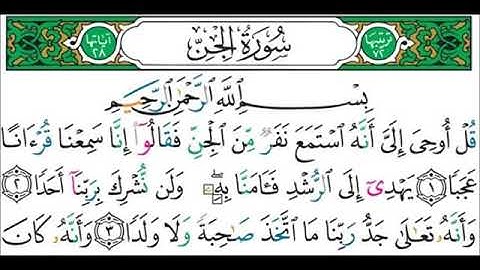 ترتيبها ٧٢ سُورَةُ الجِنِّ آياتها ٢٨
بِسْمِ اللَّهِ الرَّحْمَٰنِ الرَّحِيمِ
قُلْ أُوحِيَ إِلَيَّ أَنَّهُ ٱسْتَمَعَ نَفَرٌ مِّنَ ٱلْجِنِّ فَقَالُوٓا۟ إِنَّا سَمِعْنَا قُرْءَانًا
عَجَبًا ١ يَهْدِىٓ إِلَى ٱلرُّشْدِ فَـَٔامَنَّا بِهِۦ وَلَن نُّشْرِكَ بِرَبِّنَآ أَحَدًا ٢
وَأَنَّهُۥ تَعَٰلَىٰ جَدُّ رَبِّنَا مَا ٱتَّخَذَ صَٰحِبَةً وَلَا وَلَدًا ٣ وَأَنَّهُۥ كَانَ